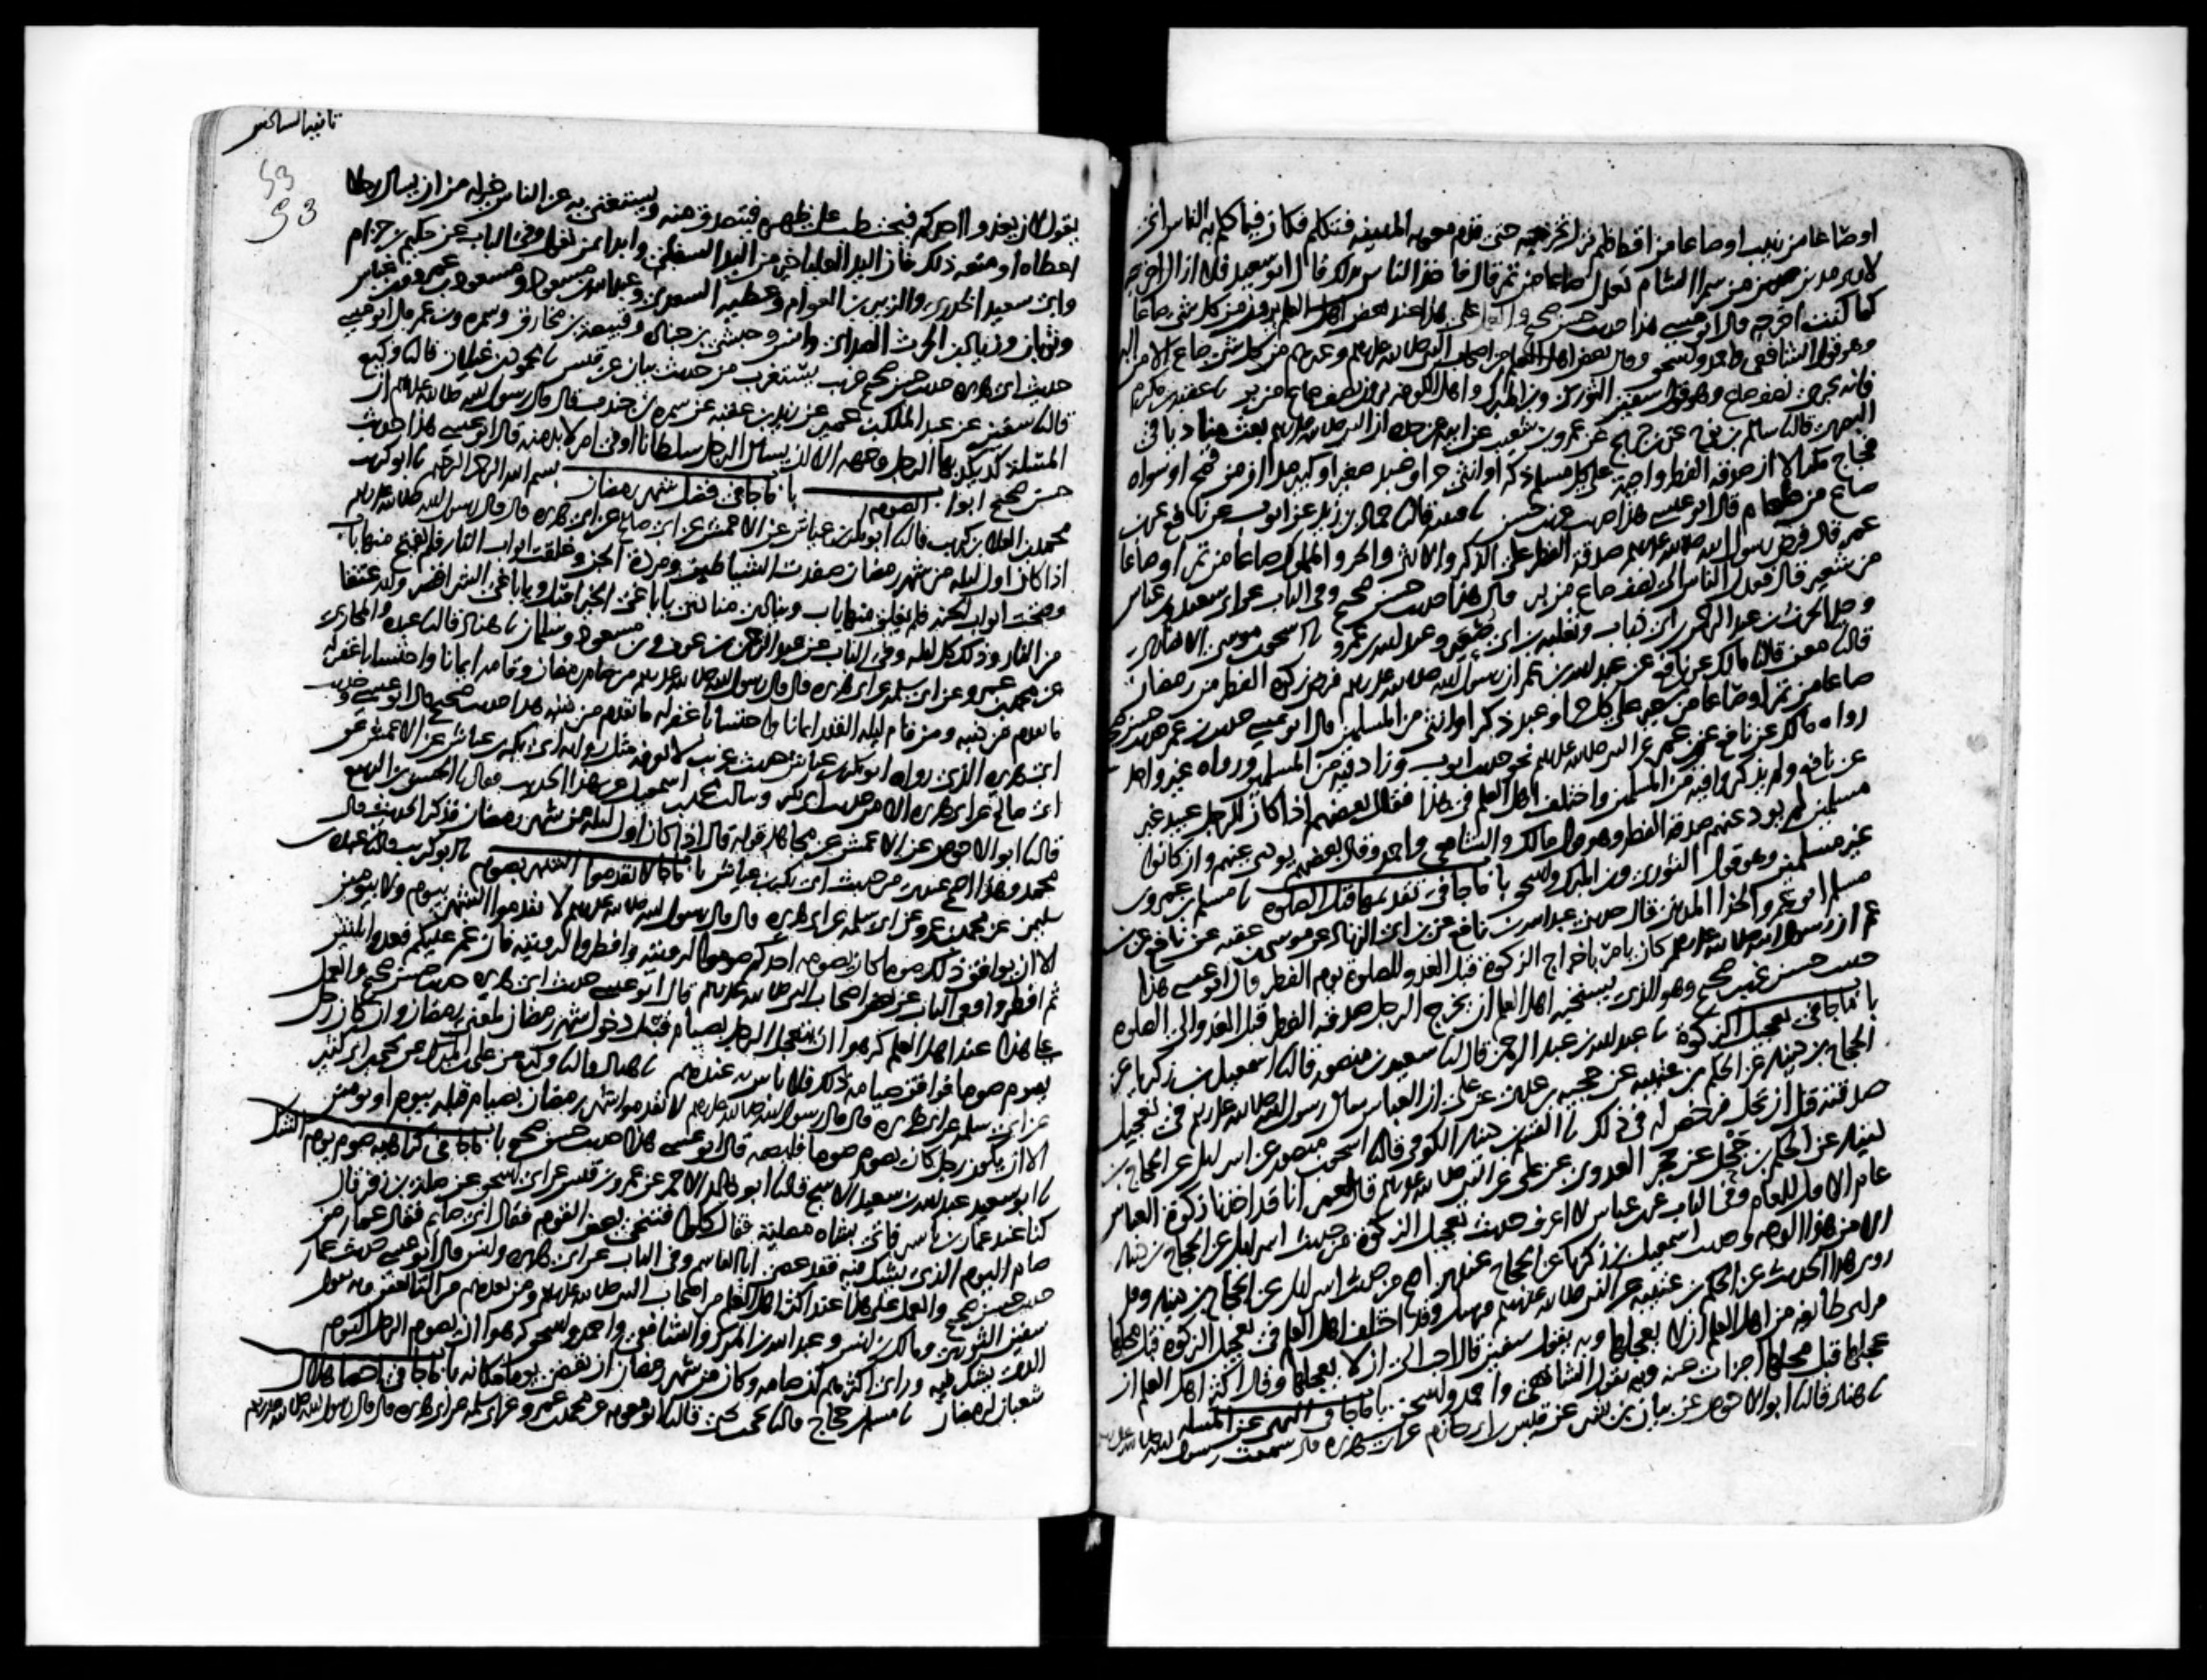 او صاعا من زبيب او صاعا من اقط فلم نزل نخرجه حتى قدم معويه المدينه فتكلم فكان فيما كلم به الناس انى
لارى مدين من سمرا الشام تعدل صاعا من تمر قال فاخذ الناس بذلك قال ابو سعيد فلا ازال اخرجه
كما كنت اخرجه قال ابو عيسى هذا حديث حسن صحيح والعمل على هذا عند بعض اهل العلم يرون من كل شى صاعا
وهو قول الشافعى واحمد واسحق وقال بعض اهل العلم من اصحاب النبى صلى الله عليه وسلم وغيرهم من كل شى صاع الا من البر
فانه يجزى نصف صاع وهو قول سفين الثورى وبن المبرك واهل الكوفه يرون نصف صاع من بر نا عقبه بن مكرم
البصرى قال نا سالم بن نوح عن بن جريج عن عمرو بن شعيب عن ابيه عن جده ان النبى صلى الله عليه وسلم بعث مناديا فى
فجاج مكه الا ان صدقه الفطر واجبه على كل مسلم ذكر او انثى حر او عبد صغير او كبير مدان من قمح او سواه
صاع من طعام قال ابو عيسى هذا حديث غريب حسن نا قتيبه قال نا حماد بن زيد عن ايوب عن نافع عن بن
عمر قال فرض رسول الله صلى الله عليه وسلم صدقه الفطر على الذكر والانثى والحر والمملوك صاعا من تمر او صاعا
من شعير قال فعدل الناس الى نصف صاع من بر قال هذا حديث حسن صحيح وفى الباب عن ابى سعيد وبن عباس
وجد الحرث بن عبد الرحمن بن ابى ذباب وثعلبه بن ابى صعير وعبد الله بن عمرو نا اسحق بن موسى الانصارى
قال نا معن قال نا مالك عن نافع عن عبد الله بن عمر ان رسول الله صلى الله عليه وسلم فرض زكوه الفطر من رمضان
صاعا من تمر او صاعا من شعير على كل حر او عبد ذكر او انثى من المسلمين قال ابو عيسى حديث بن عمر حديث حسن صحيح
رواه مالك عن نافع عن بن عمر عن النبى صلى الله عليه وسلم نحو حديث ايوب وزاد فيه من المسلمين ورواه غير واحد
عن نافع ولم يذكروا فيه من المسلمين واختلف اهل العلم فى هذا فقال بعضهم اذا كان للرجل عبيد غير
مسلمين لم يود عنهم صدقه الفطر وهو قول مالك والشافعى واحمد وقال بعضهم يودى عنهم وان كانوا
غير مسلمين وهو قول الثورى وبن المبرك واسحق باب ما جا فى تقديمها قبل الصلوه نا مسلم بن عمرو بن
مسلم ابو عمرو الحذا المدينى قال حدثنى عبد الله بن نافع عن بن ابى الزناد عن موسى بن عقبه عن نافع عن بن
عمر ان رسول الله صلى الله عليه وسلم كان يامر باخراج الزكوة قبل الغدو للصلوة يوم الفطر قال ابو عيسى هذا
حديث حسن غريب صحيح وهو الذى يستحبه اهل العلم ان يخرج الرجل صدقه الفطر قبل الغدو الى الصلوه
باب ما جا فى تعجيل الزكوة نا عبد الله بن عبد الرحمن قال نا سعيد بن منصور قال نا اسمعيل بن زكريا عن
الحجاج بن دينار عن الحكم بن عتيبه عن حجيه بن عدى عن على ان العباس سال رسول الله صلى الله عليه وسلم فى تعجيل
صدقته قبل ان تحل فرخص له فى ذلك نا القسم بن دينار الكوفى قال نا اسحق بن منصور عن اسرايل عن الحجاج بن
دينار عن الحكم بن جحل عن حجر العدوى عن على عن النبى صلى الله عليه وسلم قال لعمر انا قد اخذنا زكوة العباس
عام الاول للعام وفى الباب عن بن عباس لا اعرف حديث تعجيل الزكوة من حديث اسرايل عن الحجاج بن دينار
الا من هذا الوجه وحديث اسمعيل بن زكريا عن الحجاج عندى اصح من حديث اسرايل عن الحجاج بن دينار وقد
روى هذا الحديث عن الحكم بن عتيبه عن النبى صلى الله عليه وسلم مرسل وقد اختلف اهل العلم فى تعجيل الزكوة قبل محلها
فراى طايفه من اهل العلم ان لا يعجلها وبه يقول سفين قال احب الى ان لا يعجلها وقال اكثر اهل العلم ان
عجلها قبل محلها اجزات عنه وبه يقول الشافعى واحمد واسحق باب ما جا فى النهى عن المسله
نا هناد قال نا ابو الاحوص عن بيان بن بشر عن قيس بن ابى حازم عن ابى هريره قال سمعت رسول الله صلى الله عليه وسلم
53
53
يقول لان يغدوا احدكم فيحتطب على ظهره فيتصدق منه ويستغنى به عن الناس خير له من ان يسال رجلا
اعطاه او منعه ذلك فان اليد العليا خير من اليد السفلى وابدا بمن تعول وفى الباب عن حكيم بن حزام
وابى سعيد الخدرى والزبير بن العوام وعطيه السعدى وعبد الله بن مسعود ومسعود بن عمرو وبن عباس
وثوبان وزياد بن الحرث الصداى وانس وحبشى بن جناده وقبيصه بن مخارق وسمره وبن عمر قال ابو عيسى
حديث ابى هريره حديث حسن صحيح غريب يستغرب من حديث بيان عن قيس نا محمود بن غيلان قال نا وكيع
قال نا سفين عن عبد الملك بن عمير عن زيد بن عقبه عن سمره بن جندب قال قال رسول الله صلى الله عليه وسلم ان
المسله كد يكد بها الرجل وجهه الا ان يسال الرجل سلطانا او فى امر لا بد منه قال ابو عيسى هذا حديث
حسن صحيح ابواب الصوم باب ما جا فى فضل شهر رمضان بسم الله الرحمن الرحيم نا ابو كريب
محمد بن العلا بن كريب قال نا ابو بكر بن عياش عن الاعمش عن ابى صالح عن ابى هريره قال قال رسول الله صلى الله عليه وسلم
اذا كان اول ليله من شهر رمضان صفدت الشياطين ومردة الجن وغلقت ابواب النار فلم يفتح منها باب
وفتحت ابواب الجنه فلم يغلق منها باب وينادى مناد يا باغى الخير اقبل ويا باغى الشر اقصر ولله عتقا
من النار وذلك كل ليله وفى الباب عن عبد الرحمن بن عوف وبن مسعود وسلمان نا هناد قال نا عبده والمحاربى
عن محمد بن عمرو عن ابى سلمه عن ابى هريره قال قال رسول الله صلى الله عليه وسلم من صام رمضان وقامه ايمانا واحتسابا غفر له
ما تقدم من ذنبه ومن قام ليله القدر ايمانا واحتسابا غفر له ما تقدم من ذنبه هذا حديث صحيح قال ابو عيسى وحديث
ابى هريره الذى رواه ابو بكر بن عياش حديث غريب لا نعرفه مثل روايه ابى بكر بن عياش عن الاعمش عن
ابى صالح عن ابى هريره الا من حديث ابى بكر وسالت محمد بن اسمعيل عن هذا الحديث فقال نا الحسن بن الربيع
قال نا ابو الاحوص عن الاعمش عن مجاهد قوله قال اذا كان اول ليله من شهر رمضان فذكر الحديث قال
محمد وهذا اصح عندى من حديث ابى بكر بن عياش باب ما جا لا تقدموا الشهر بصوم نا ابو كريب قال نا عبده بن
سليمن عن محمد بن عمرو عن ابى سلمه عن ابى هريره قال قال رسول الله صلى الله عليه وسلم لا تقدموا الشهر بيوم ولا بيومين
الا ان يوافق ذلك صوما كان يصومه احدكم صوموا لرويته وافطروا لرويته فان غم عليكم فعدوا ثلثين
ثم افطروا وفى الباب عن بعض اصحاب النبى صلى الله عليه وسلم قال ابو عيسى حديث ابى هريره حديث حسن صحيح والعمل
على هذا عند اهل العلم كرهوا ان يتعجل الرجل بصيام قبل دخول شهر رمضان لمعنى رمضان وان كان رجل
يصوم صوما فوافق صيامه ذلك فلا باس به عندهم نا هناد قال نا وكيع عن على بن المبرك عن يحيى بن ابى كثير
عن ابى سلمه عن ابى هريره قال قال رسول الله صلى الله عليه وسلم لا تقدموا شهر رمضان بصيام قبله بيوم او يومين
الا ان يكون رجل كان يصوم صوما فليصمه قال ابو عيسى هذا حديث حسن صحيح باب ما جا فى كراهيه صوم يوم الشك
نا ابو سعيد عبد الله بن سعيد الاشج قال نا ابو خالد الاحمر عن عمرو بن قيس عن ابى اسحق عن صله بن زفر قال
كنا عند عمار بن ياسر فاتى بشاه مصليه فقال كلوا فتنحى بعض القوم فقال انى صايم فقال عمار من
صام اليوم الذى يشك فيه فقد عصى ابا القاسم وفى الباب عن ابى هريره وانس قال ابو عيسى حديث عمار
حديث حسن صحيح والعمل على هذا عند اكثر اهل العلم من اصحاب النبى صلى الله عليه وسلم ومن بعدهم من التابعين وبه يقول
سفين الثورى ومالك بن انس وعبد الله بن المبرك والشافعى واحمد واسحق كرهوا ان يصوم الرجل اليوم
الذى يشك فيه وراى اكثرهم ان صامه وكان من شهر رمضان ان يقضى يوما مكانه باب ما جا فى احصا هلال
شعبان لرمضان نا مسلم بن حجاج قال نا يحيى بن يحيى قال نا ابو معويه عن محمد بن عمرو عن ابى سلمه عن ابى هريره قال قال رسول الله صلى الله عليه وسلم